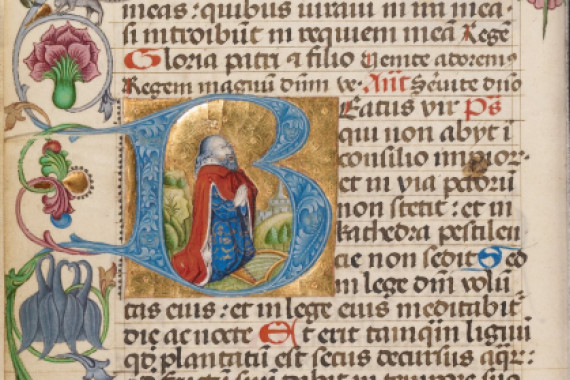 meas : quibus iuraui in ira mea ·
si introibūt in requiem meā Rege
Gloria patri et filio Uenite adorem⁹
Regem magnū dn̄m ve· An̄t Seruite dn̄o
Beatus vir Ps
qui non abyt ī
consilio impior·
et in via petorū
non stetit : et in
kathedra pestilen
cie non sedit Sed
in lege dn̄i volū
tas eius : et in lege eius meditabit
die ac nocte Et erit tamqm̄ lignū
qd̄ plantatū est secus decursus aqr: